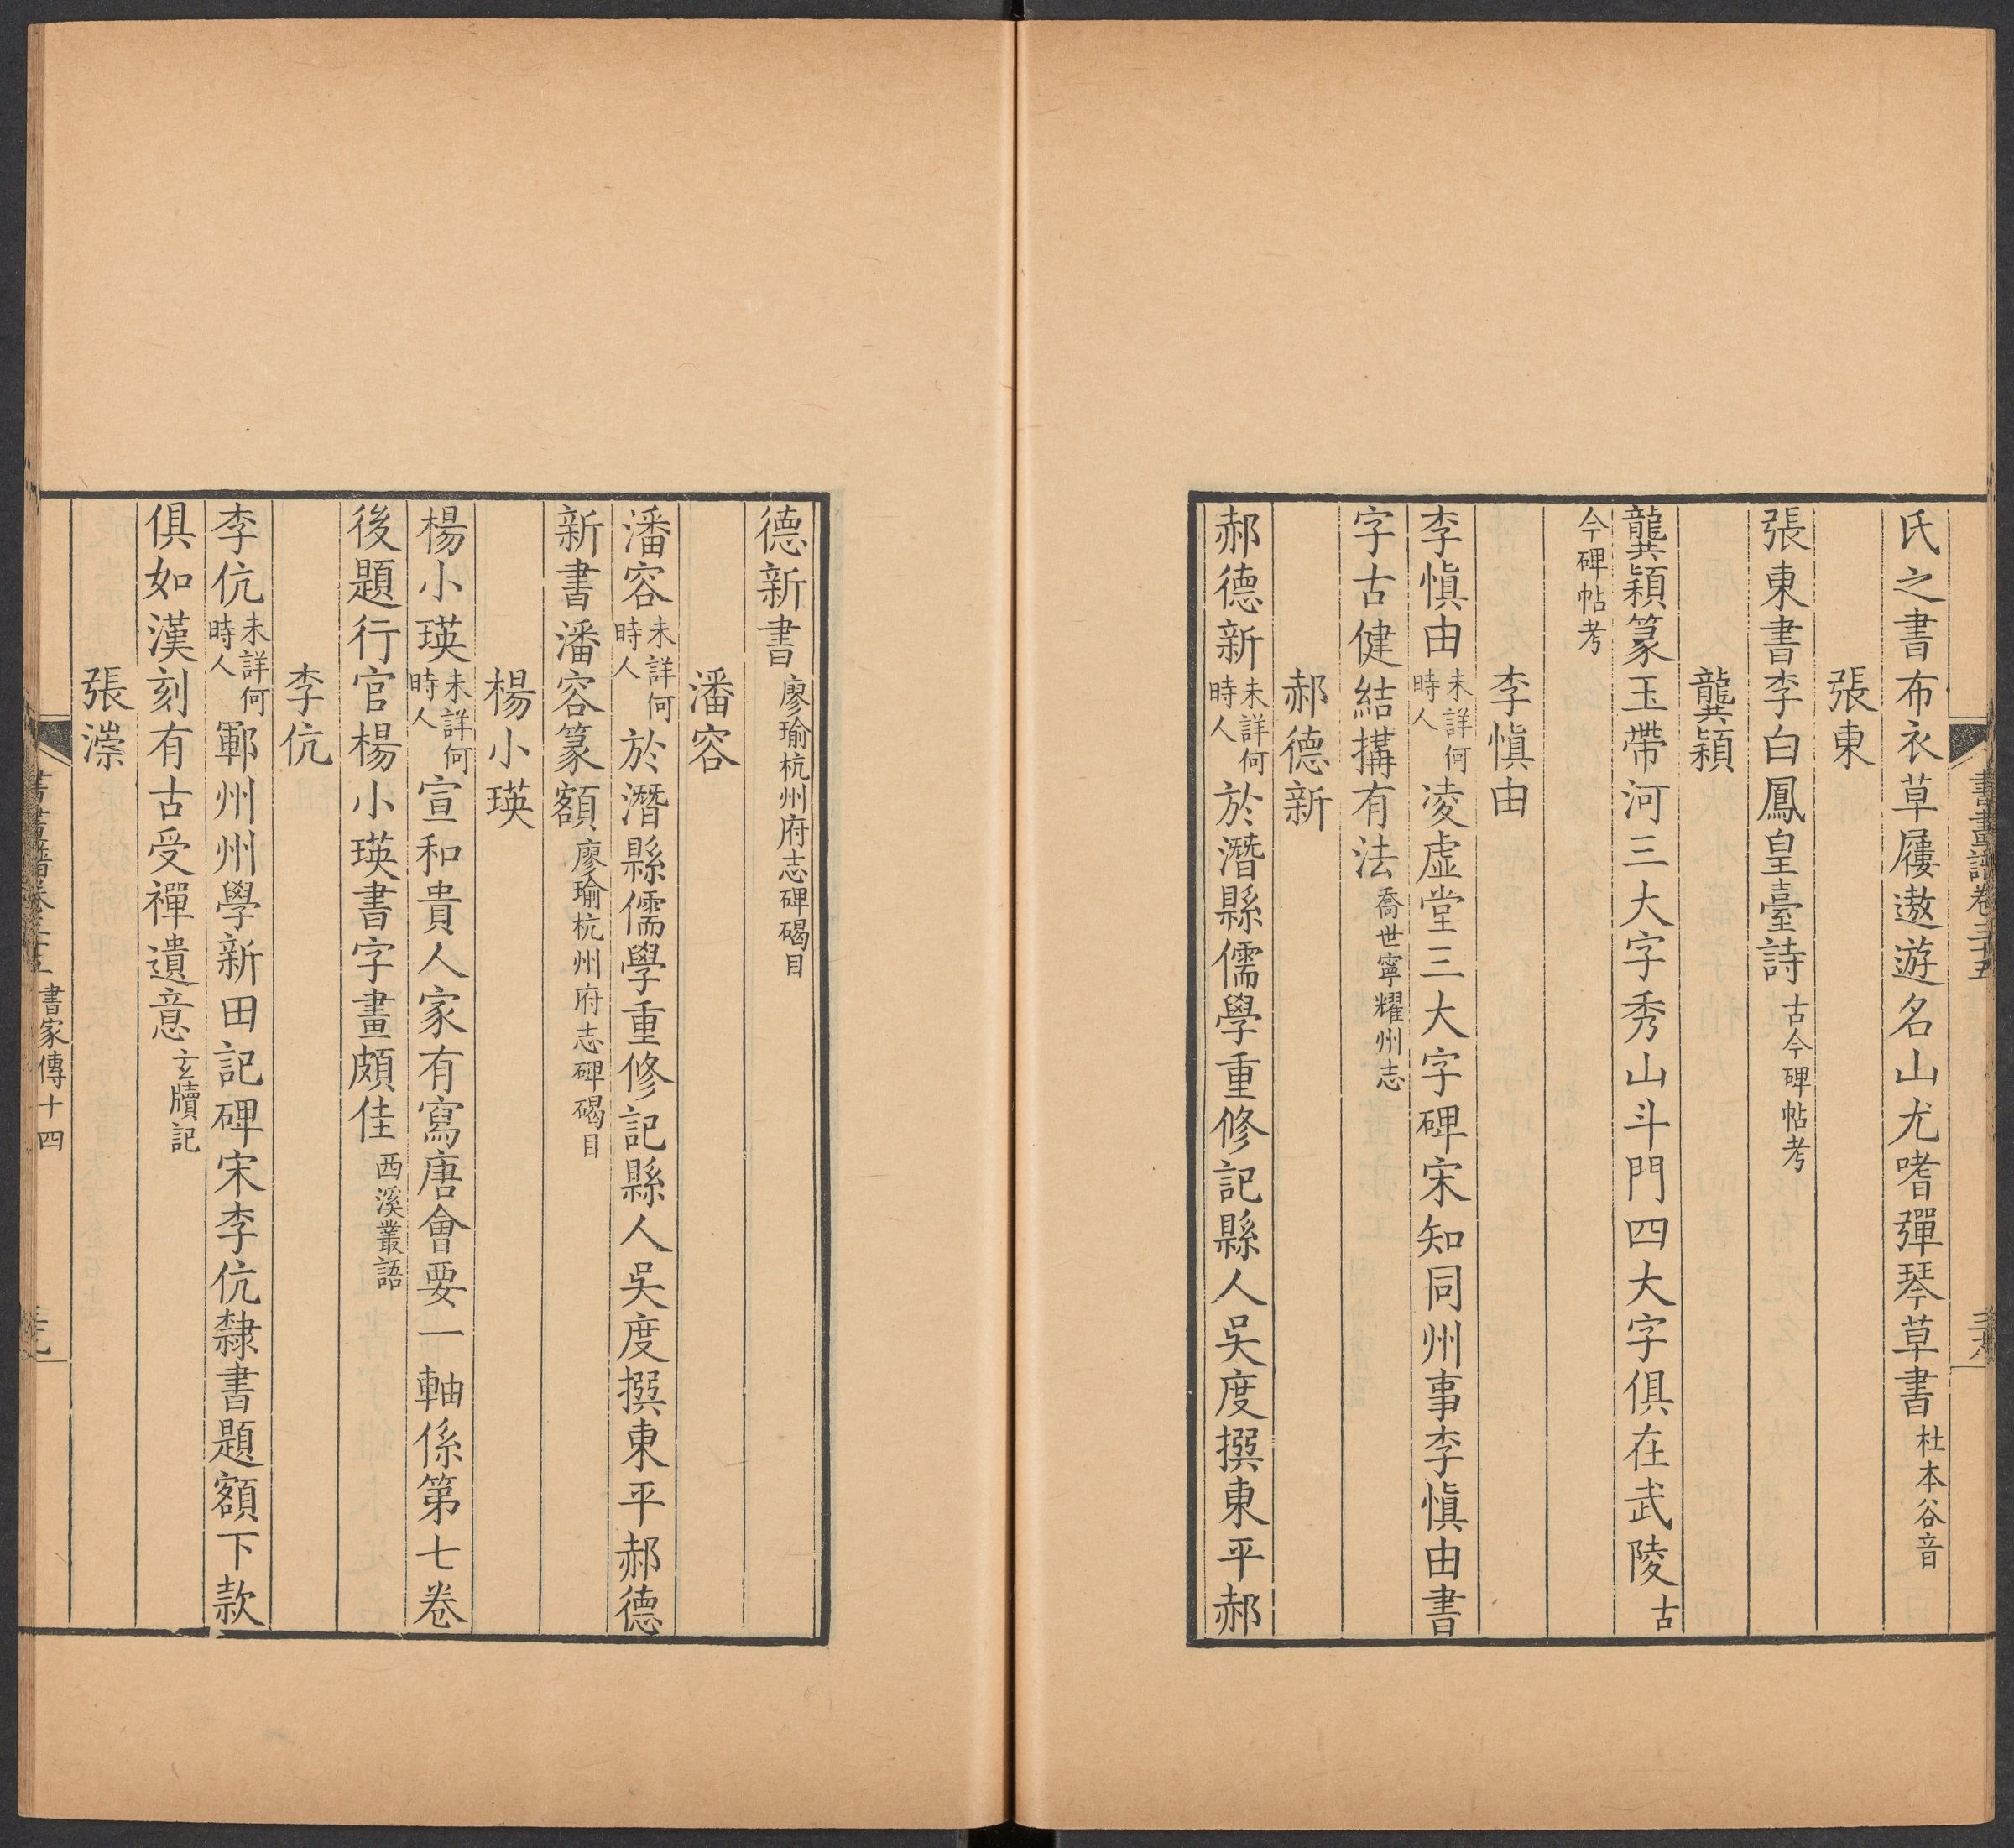 書畫譜卷三十五
三十八
氏之書布衣草屨遨遊名山尤嗜彈琴草書杜本谷音
張東
張東書李白鳳皇臺詩古今碑帖考
龔穎
龔穎篆玉帶河三大字秀山斗門四大字俱在武陵古
今碑帖考
李慎由
李慎由未詳何時人凌虛堂三大字碑宋知同州事李慎由書
字古健結搆有法喬世寧耀州志
郝德新
郝德新未詳何時人於潛縣儒學重修記縣人吳度撰東平郝
德新書廖瑜杭州府志碑碣目
潘容
潘容未詳何時人於潛縣儒學重修記縣人吳度撰東平郝德
新書潘容篆額廖瑜杭州府志碑碣目
楊小瑛
楊小瑛未詳何時人宣和貴人家有寫唐會要一軸係第七卷
後題行官楊小瑛書字畫頗佳西溪叢語
李伉
李伉未詳何時人鄆州州學新田記碑宋李伉隸書題額下款
俱如漢刻有古受禪遺意玄牘記
張漴
書畫譜卷三十五 書家傳十四
三十九